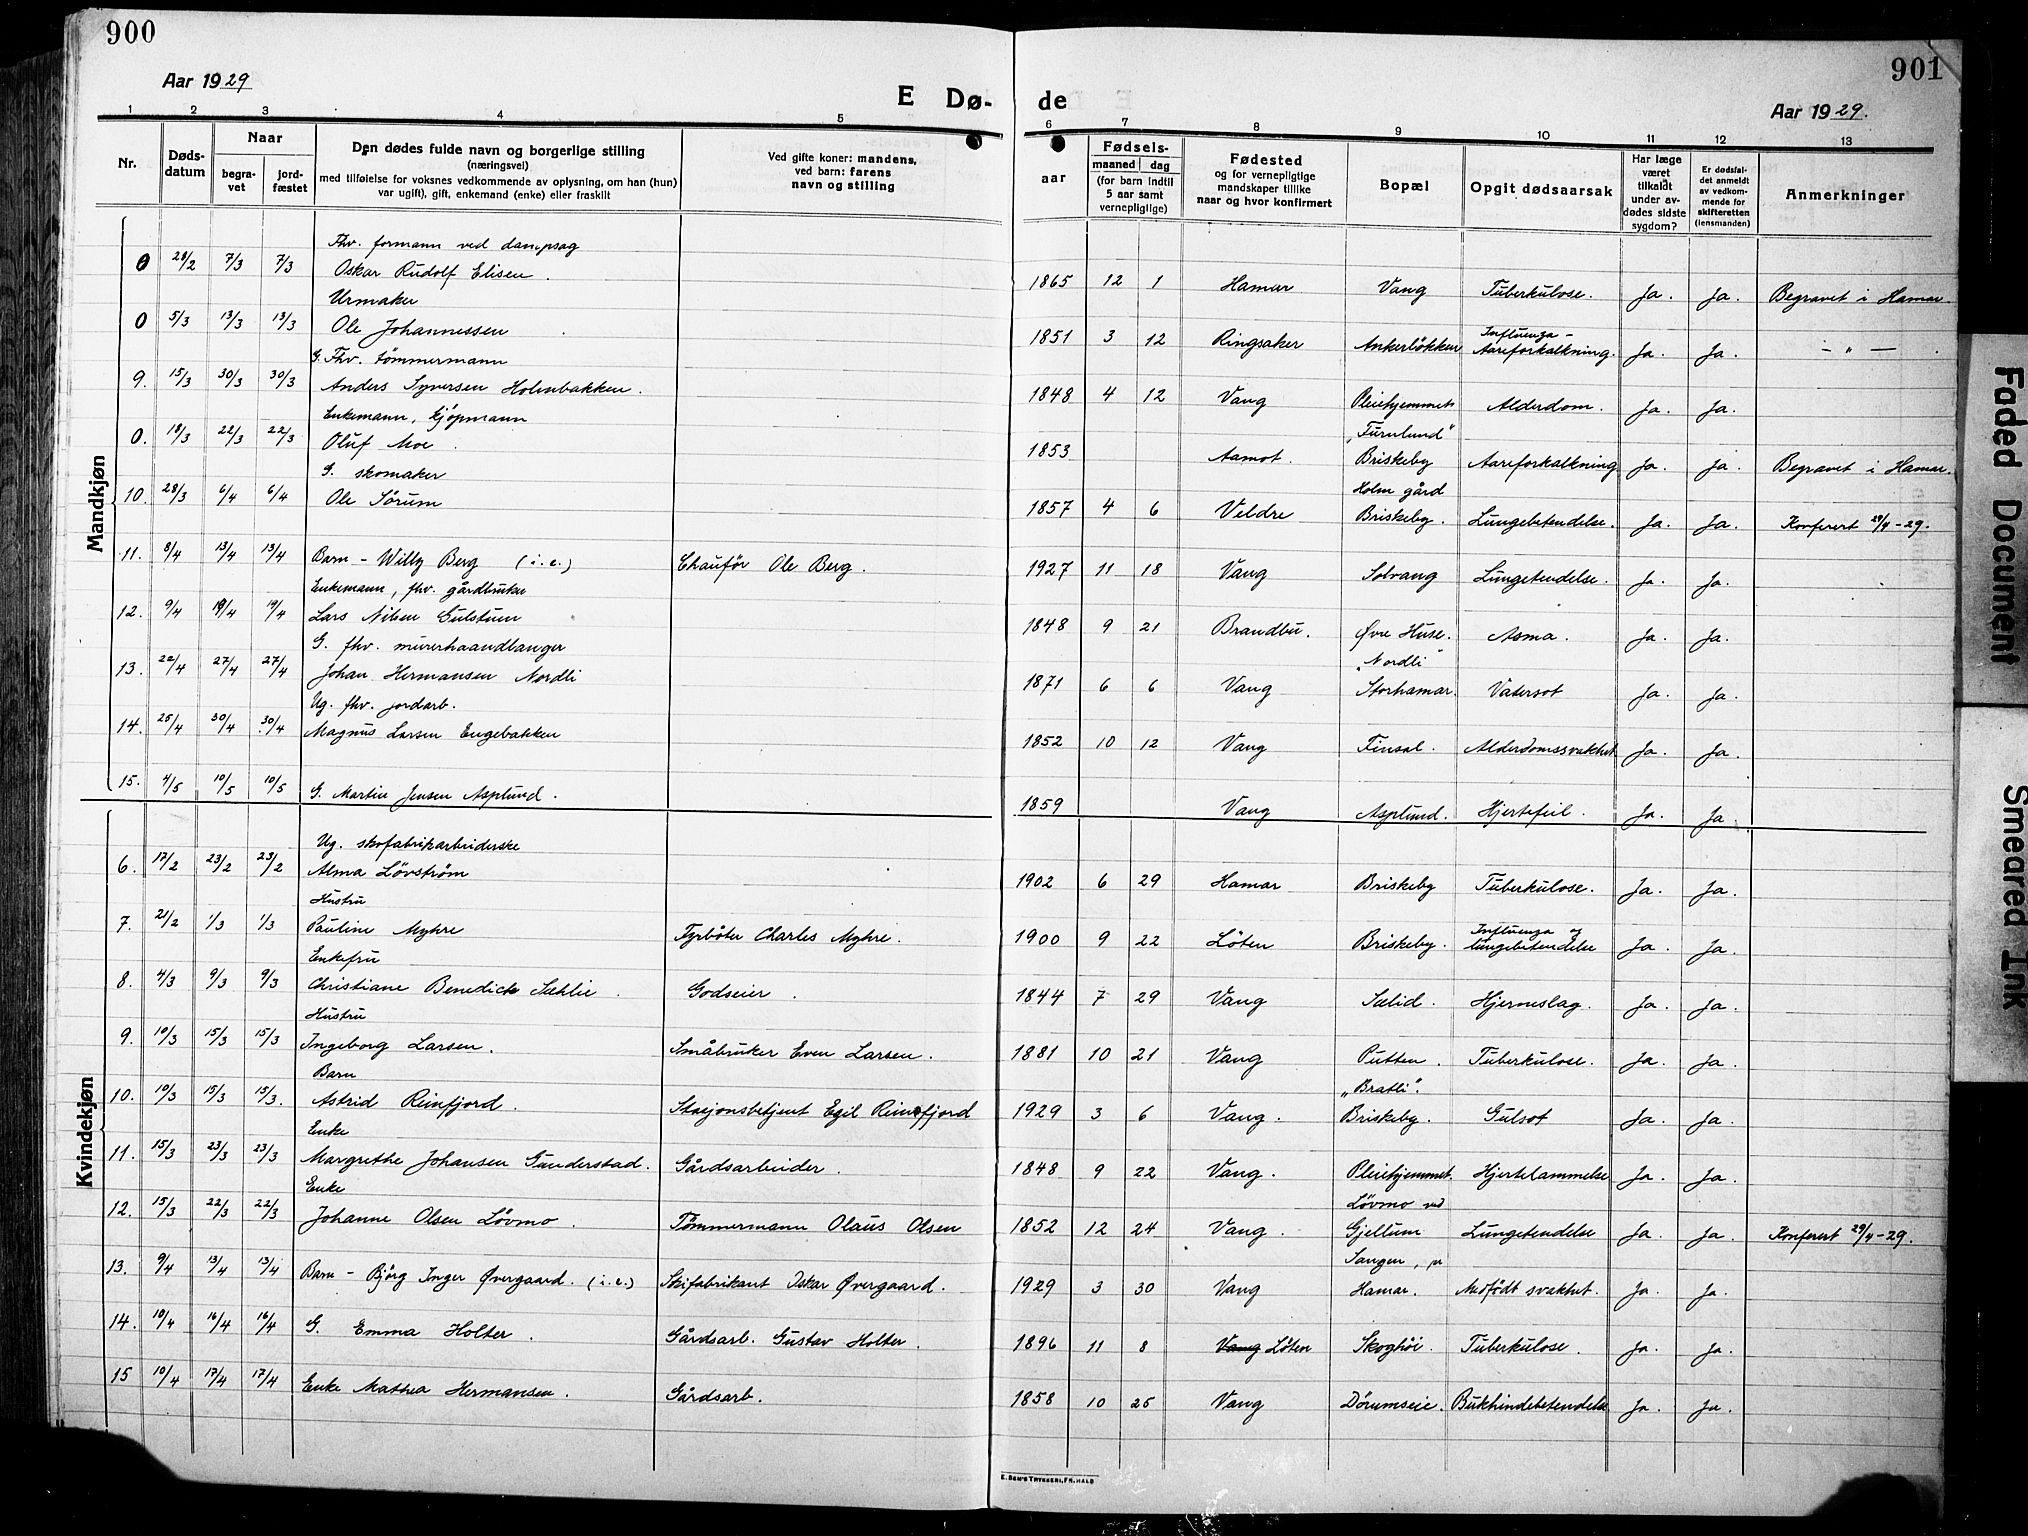 900
901
Aar 1929
Aar 1929.
E Dø-
de
1 2 3 4 5
6 7 8 9 10 11 12 13
Nr.
Døds-
datum
Naar
begra-
vet
jord-
fæstet
Den dødes fulde navn og borgerlige stilling
(næringsvei)
med tilføielse for voksnes vedkommende av oplysning, om han (hun)
var ugift), gift, enkemand (enke) eller fraskilt
Ved gifte koner: mandens,
ved barn: farens
navn og stilling
aar
Fødsels-
maaned dag
(for barn indtil
5 aar samt
vernepligtige)
Fødested
og for vernepligtige
mandskaper tillike
naar og hvor konfirmert
Bopæl
Opgit dødsaarsak
Har læge
været
tilkaldt
under av-
dødes sidste
sygdom?
Er dødsfal-
det anmeldt
av vedkom-
mende for
skifteretten
(lensmanden)
Anmerkninger
Mandkjøn
Fhv. formann ved dampsag
0 28/2 7/3 7/3 Oskar Rudolf Elisen. 1865 12 1 Hamar Vang Tuberkulose. Ja. Ja. Begravet i Hamar.
Urmaker
0 5/3 13/3 13/3 Ole Johannessen 1851 3 12 Ringsaker Ankerløkken Influenza – Aareforkalkning. Ja. Ja. — " —
G. Fhv. tømmermann
9. 15/3 30/3 30/3 Anders Syversen Holmbakken. 1848 4 12 Vang Pleiehjemmet Alderdom. Ja. Ja.
Enkemann, kjøpmann
"Furulund"
0. 18/3 22/3 22/3 Oluf Moe. 1853 Aamot. Briskeby Aareforkalkning Ja. Ja. Begravet i Hamar.
G. skomaker
Holm gård
10. 28/3 6/4 6/4 Ole Sørum 1857 4 6 Veldre Briskeby. Lungebetendelse. Ja. Ja. Konferert 29/4-29.
11. 8/4 13/4 13/4 Barn – Willy Berg (i.e.) Chaufør Ole Berg. 1927 11 18 Vang Solvang Lungetendelse. Ja. Ja.
Enkemann, fhv. gårdbruker
12. 9/4 19/4 19/4 Lars Nilsen Gulstuen 1848 9 21 Brandbu. Øvre Huse. Asma. Ja. Ja.
G. fhv. murerhaandlanger
"Nordli"
13. 22/4 27/4 27/4 Johan Hermansen Nordli 1871 6 6 Vang Storhamar. Vatersot Ja. Ja.
Ug. fhv. jordarb.
14. 25/4 30/4 30/4 Magnus Larsen Engebakken 1852 10 12 Vang Finsal. Alderdomssvakhet Ja. Ja.
15. 4/5 10/5 10/5 G. Martin Jensen Asplund. 1859 Vang Asplund. Hjertefeil. Ja. Ja
Kvindekjøn
Ug. skofabrikarbeiderske
6. 17/2 23/2 23/2 Alma Løvstrøm 1902 6 29 Hamar Briskeby Tuberkulose. Ja. Ja.
Hustru
7. 21/2 1/3 1/3 Pauline Myhre Fyrbøter Charles Myhre. 1900 9 22 Løten Briskeby. Influenza og lungebetendelse Ja. Ja.
Enkefru
8. 4/3 9/3 9/3 Christiane Benedicte Sæhlie. Godseier. 1844 7 29 Vang Sælid. Hjerneslag. Ja. Ja.
Hustru
9. 10/3 15/3 15/3 Ingeborg Larsen. Småbruker Even Larsen. 1881 10 21 Vang Putten. Tuberkulose. Ja. Ja.
Barn
"Bratli".
10. 10/3 15/3 15/3. Astrid Reinfjord. Stasjonsbetjent Egil Reinfjord 1929 3 6 Vang. Briskeby. Gulsot Ja. Ja.
Enke
11. 15/3 23/3 23/3 Margrethe Johansen Gunderstad. Gårdsarbeider. 1848 9 22 Vang. Pleiehjemmet. Hjertelammelse Ja. Ja.
Enke
Løvmo ved
12. 15/3 22/3 22/3 Johanne Olsen Løvmo. Tømmermann Olaus Olsen 1852 12 24 Vang. Gjellum Lungetendelse Ja. Ja. Konferert 29/4-29.
Sangen, pr
13. 9/4 13/4 13/4 Barn – Bjørg Inger Øvergaard. (i.e.) Skifabrikant Oskar Øvergaard. 1929 3 30 Vang Hamar. Medfødt svakhet. Ja. Ja.
14. 10/4 16/4 16/4 G. Emma Holter. Gårdsarb. Gustav Holter. 1896 11 8 Vang Løten Skoghøi. Tuberkulose. Ja. Ja.
15 10/4 17/4 17/4 Enke Mathea Hermansen. Gårdsarb. 1858 10 25 Vang Dørumseie. Bukhindebetendelse Ja. Ja.
E. SEM'S TRYKKERI, FR. HALD
Faded Document
Smeared Ink